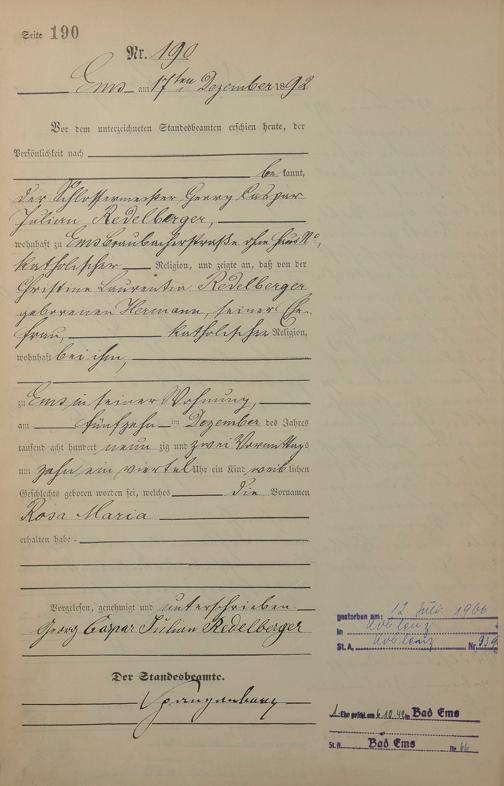 Seite 190
Nr. 190
Ems am 17ten Dezember 1892
Vor dem unterzeichneten Standesbeamten erschien heute, der
Persönlichkeit nach
be kannt,
der Schlossermeister Georg Caspar
Julian Redelberger,
wohnhaft zu Ems Braubacherstraße ohne Haus No,
katholischer Religion, und zeigte an, daß von der
Christine Laurentia Redelberger
geborenen Hermann, seiner Ehe-
frau, katholischer Religion,
wohnhaft bei ihm,
zu Ems in seiner Wohnung,
am fünfzehn ten Dezember des Jahres
tausend acht hundert neun zig und zwei Vormittags
um zehn ein viertel Uhr ein Kind weib lichen
Geschlechts geboren worden sei, welches die Vornamen
Rosa Maria
erhalten habe.
Vorgelesen, genehmigt und unterschrieben
Georg Caspar Julian Redelberger
Der Standesbeamte.
Spangenberg
gestorben am: 12 Juli 1966
in Koblenz
St. A. Koblenz Nr.
1. Ehe geschl. am in Bad Ems
St. A. Bad Ems Nr.